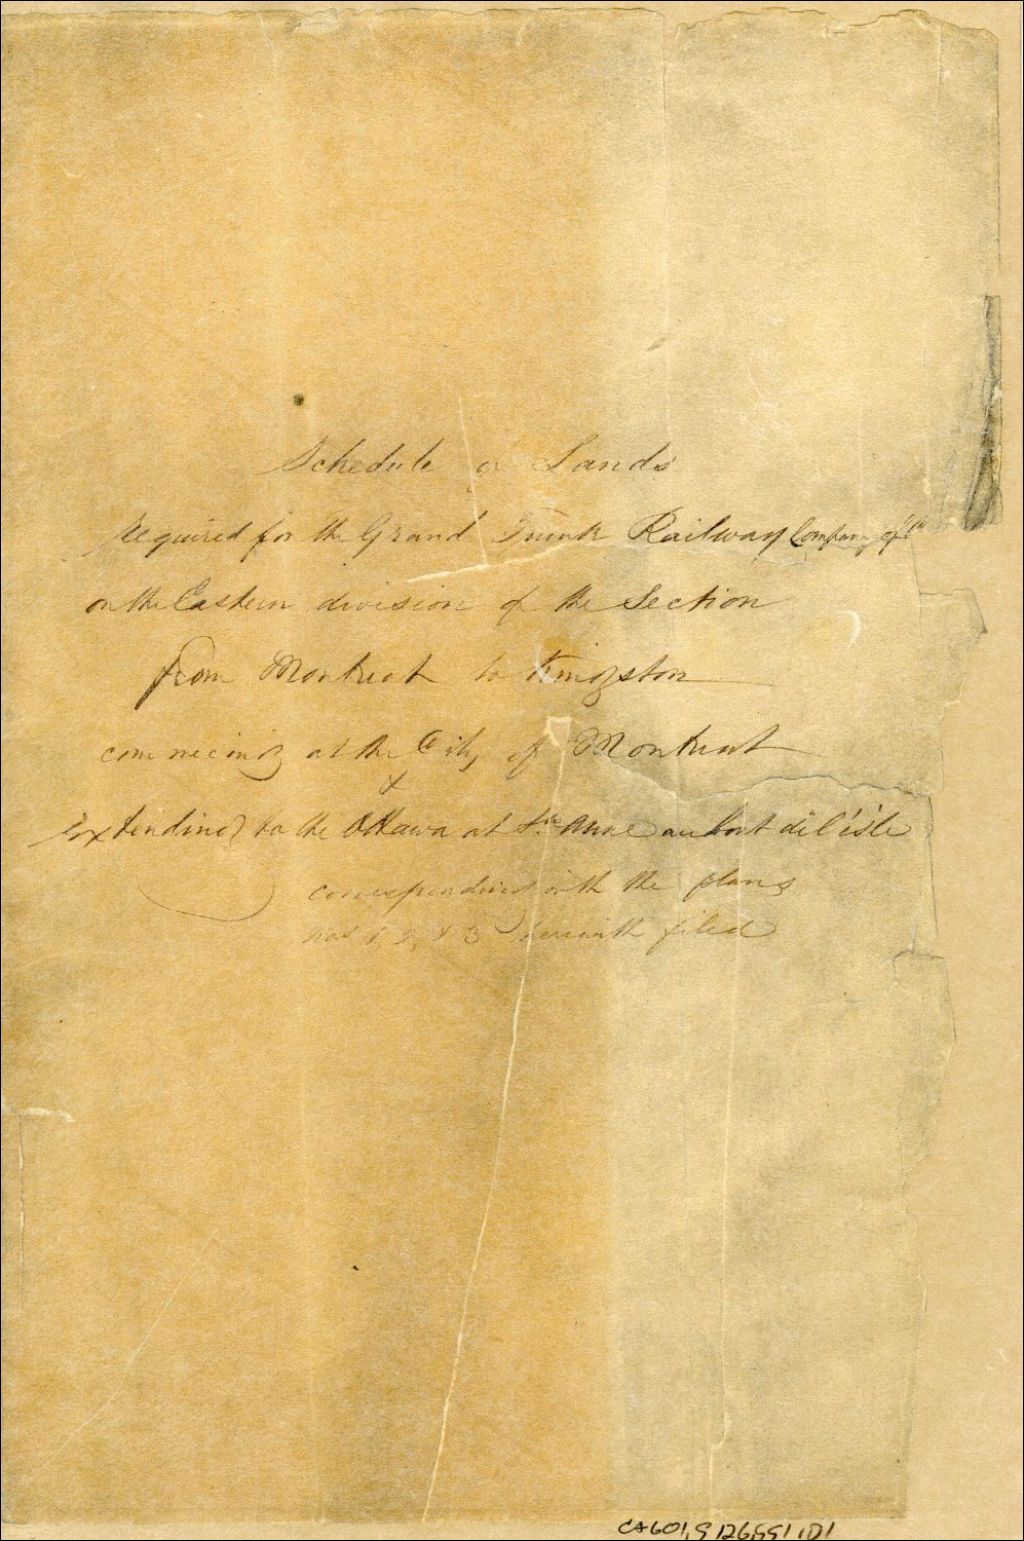 Schedule of Lands
Required for the Grand Trunk Railway Company of
on the Eastern division of the Section
from Montreal to Kingston
commecing at the City of Montreal
&
Extending to the Ottawa at Ste Anne au bout de l'isle
corresponding with the plans
nos 1, 2, & 3 herewith filed
CA601,S126,SS1,D1